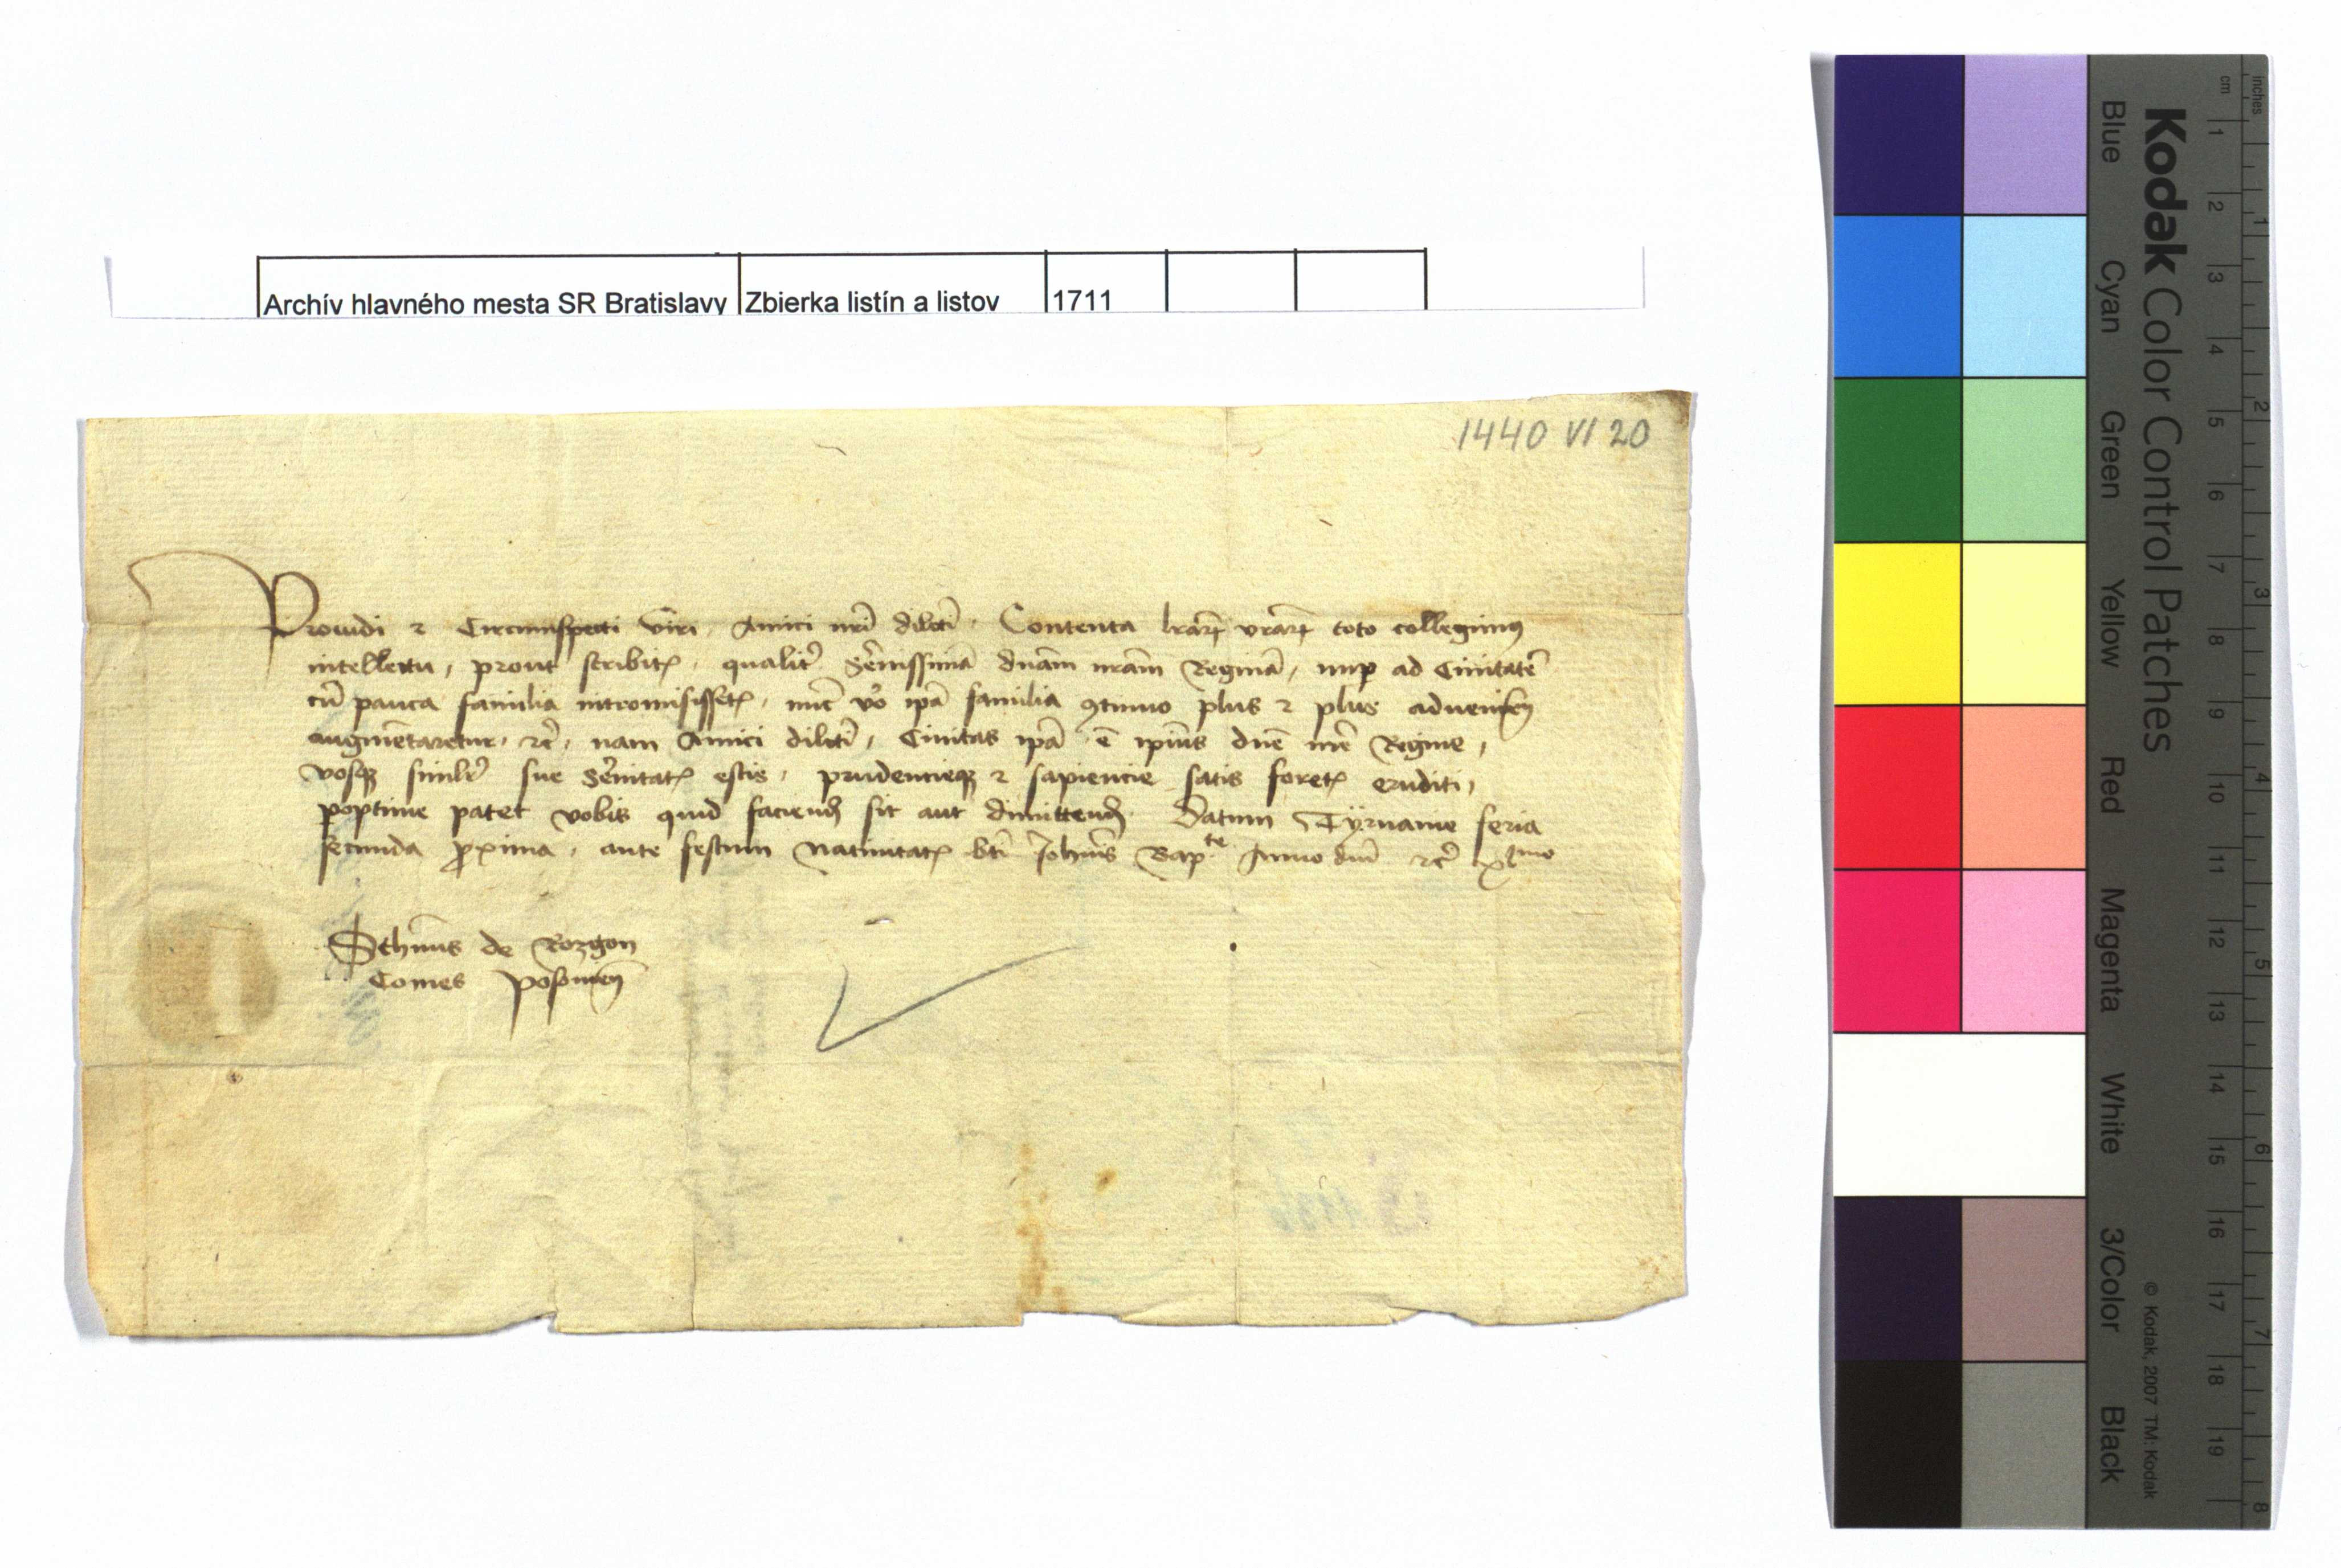 Archív hlavného mesta SR Bratislavy Zbierka listín a listov 1711
1440 VI 20
Providi et Circumspecti viri Amici nri dilcti Contenta lrarum vrarum toto collegimus
intellectu, prout scribitis, qualiter Serenissimā dnam nram Reginā, nup ad Civitatē
cū pauca familia intromisissetis, nūc vo ipa familia continuo plus et plus advenien
augmētaretur, etc, nam Amici dilcti, Civitas ipa ē ipius dne nre Regine,
vosque similiter sue Serenitatis estis, prudencieque et sapiencie satis foretis eruditi,
peroptime patet vobis quid faciend sit aut dimittend. Datum Tyrnauie feria
secunda proxima, ante festum Nativitatis bti Johnis Bapte Anno dni etc xlmo
Sthnus de Rozgon
Comes Posonien
Kodak Color Control Patches
inches
cm
Blue Cyan Green Yellow Red Magenta White 3/Color Black
1 2 3 4 5 6 7 8 9 10 11 12 13 14 15 16 17 18 19
1 2 3 4 5 6 7 8
© Kodak, 2007 TM: Kodak